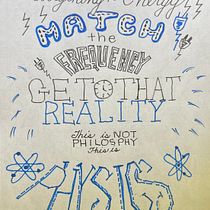 Everything is Energy
MATCH
the
FREQUENCY
GET TO THAT
REALITY
This is NOT
PHILOSPHY
This is
PHYSICS